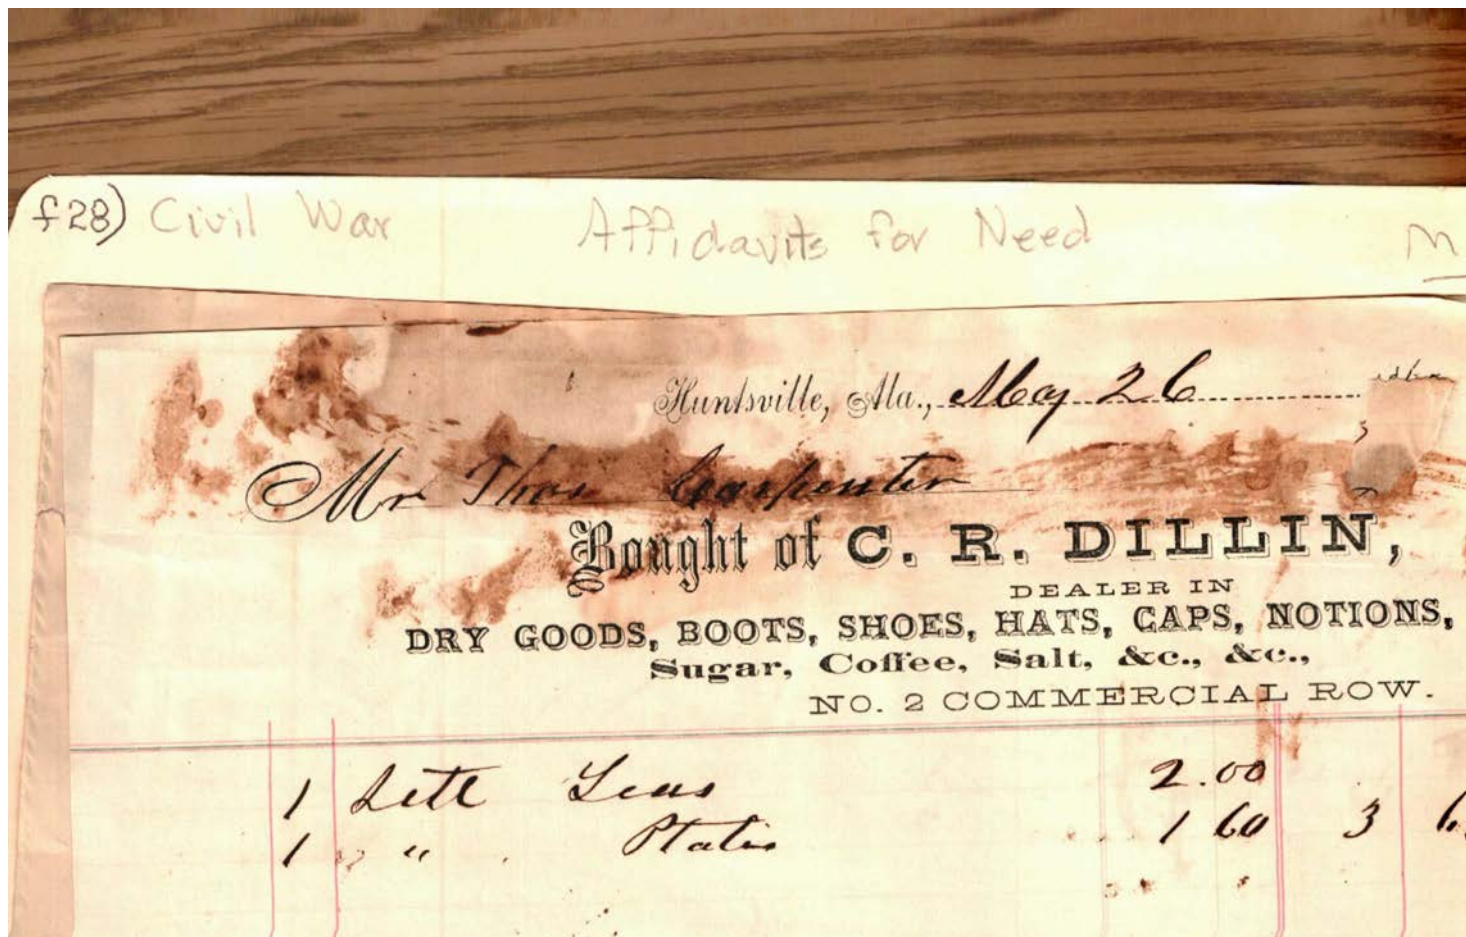 f28) Civil War Affidavits for Need M
Huntsville, Ala., May 26
Mr Thos Carpenter
Bought of C. R. DILLIN,
DEALER IN
DRY GOODS, BOOTS, SHOES, HATS, CAPS, NOTIONS,
Sugar, Coffee, Salt, &c., &c.,
NO. 2 COMMERCIAL ROW.
1 Sett 2.00
1 " 1 60 3 6